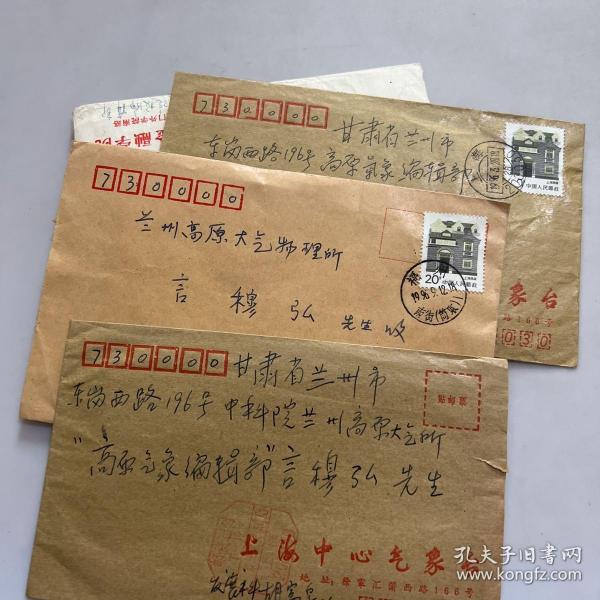 730000
甘肃省兰州市
东岗西路196号 高原气象编辑部
中国人民邮政
象台
路166号
030
730000
兰州高原大气物理所
言穆弘 先生收
20分
中国人民邮政
730000
甘肃省兰州市
东岗西路196号 中科院兰州高原大气所
"高原气象编辑部"言穆弘 先生
贴邮票
上海中心气象台
地址:徐家汇蒲西路166号
孔夫子旧书网
www.kongfz.com